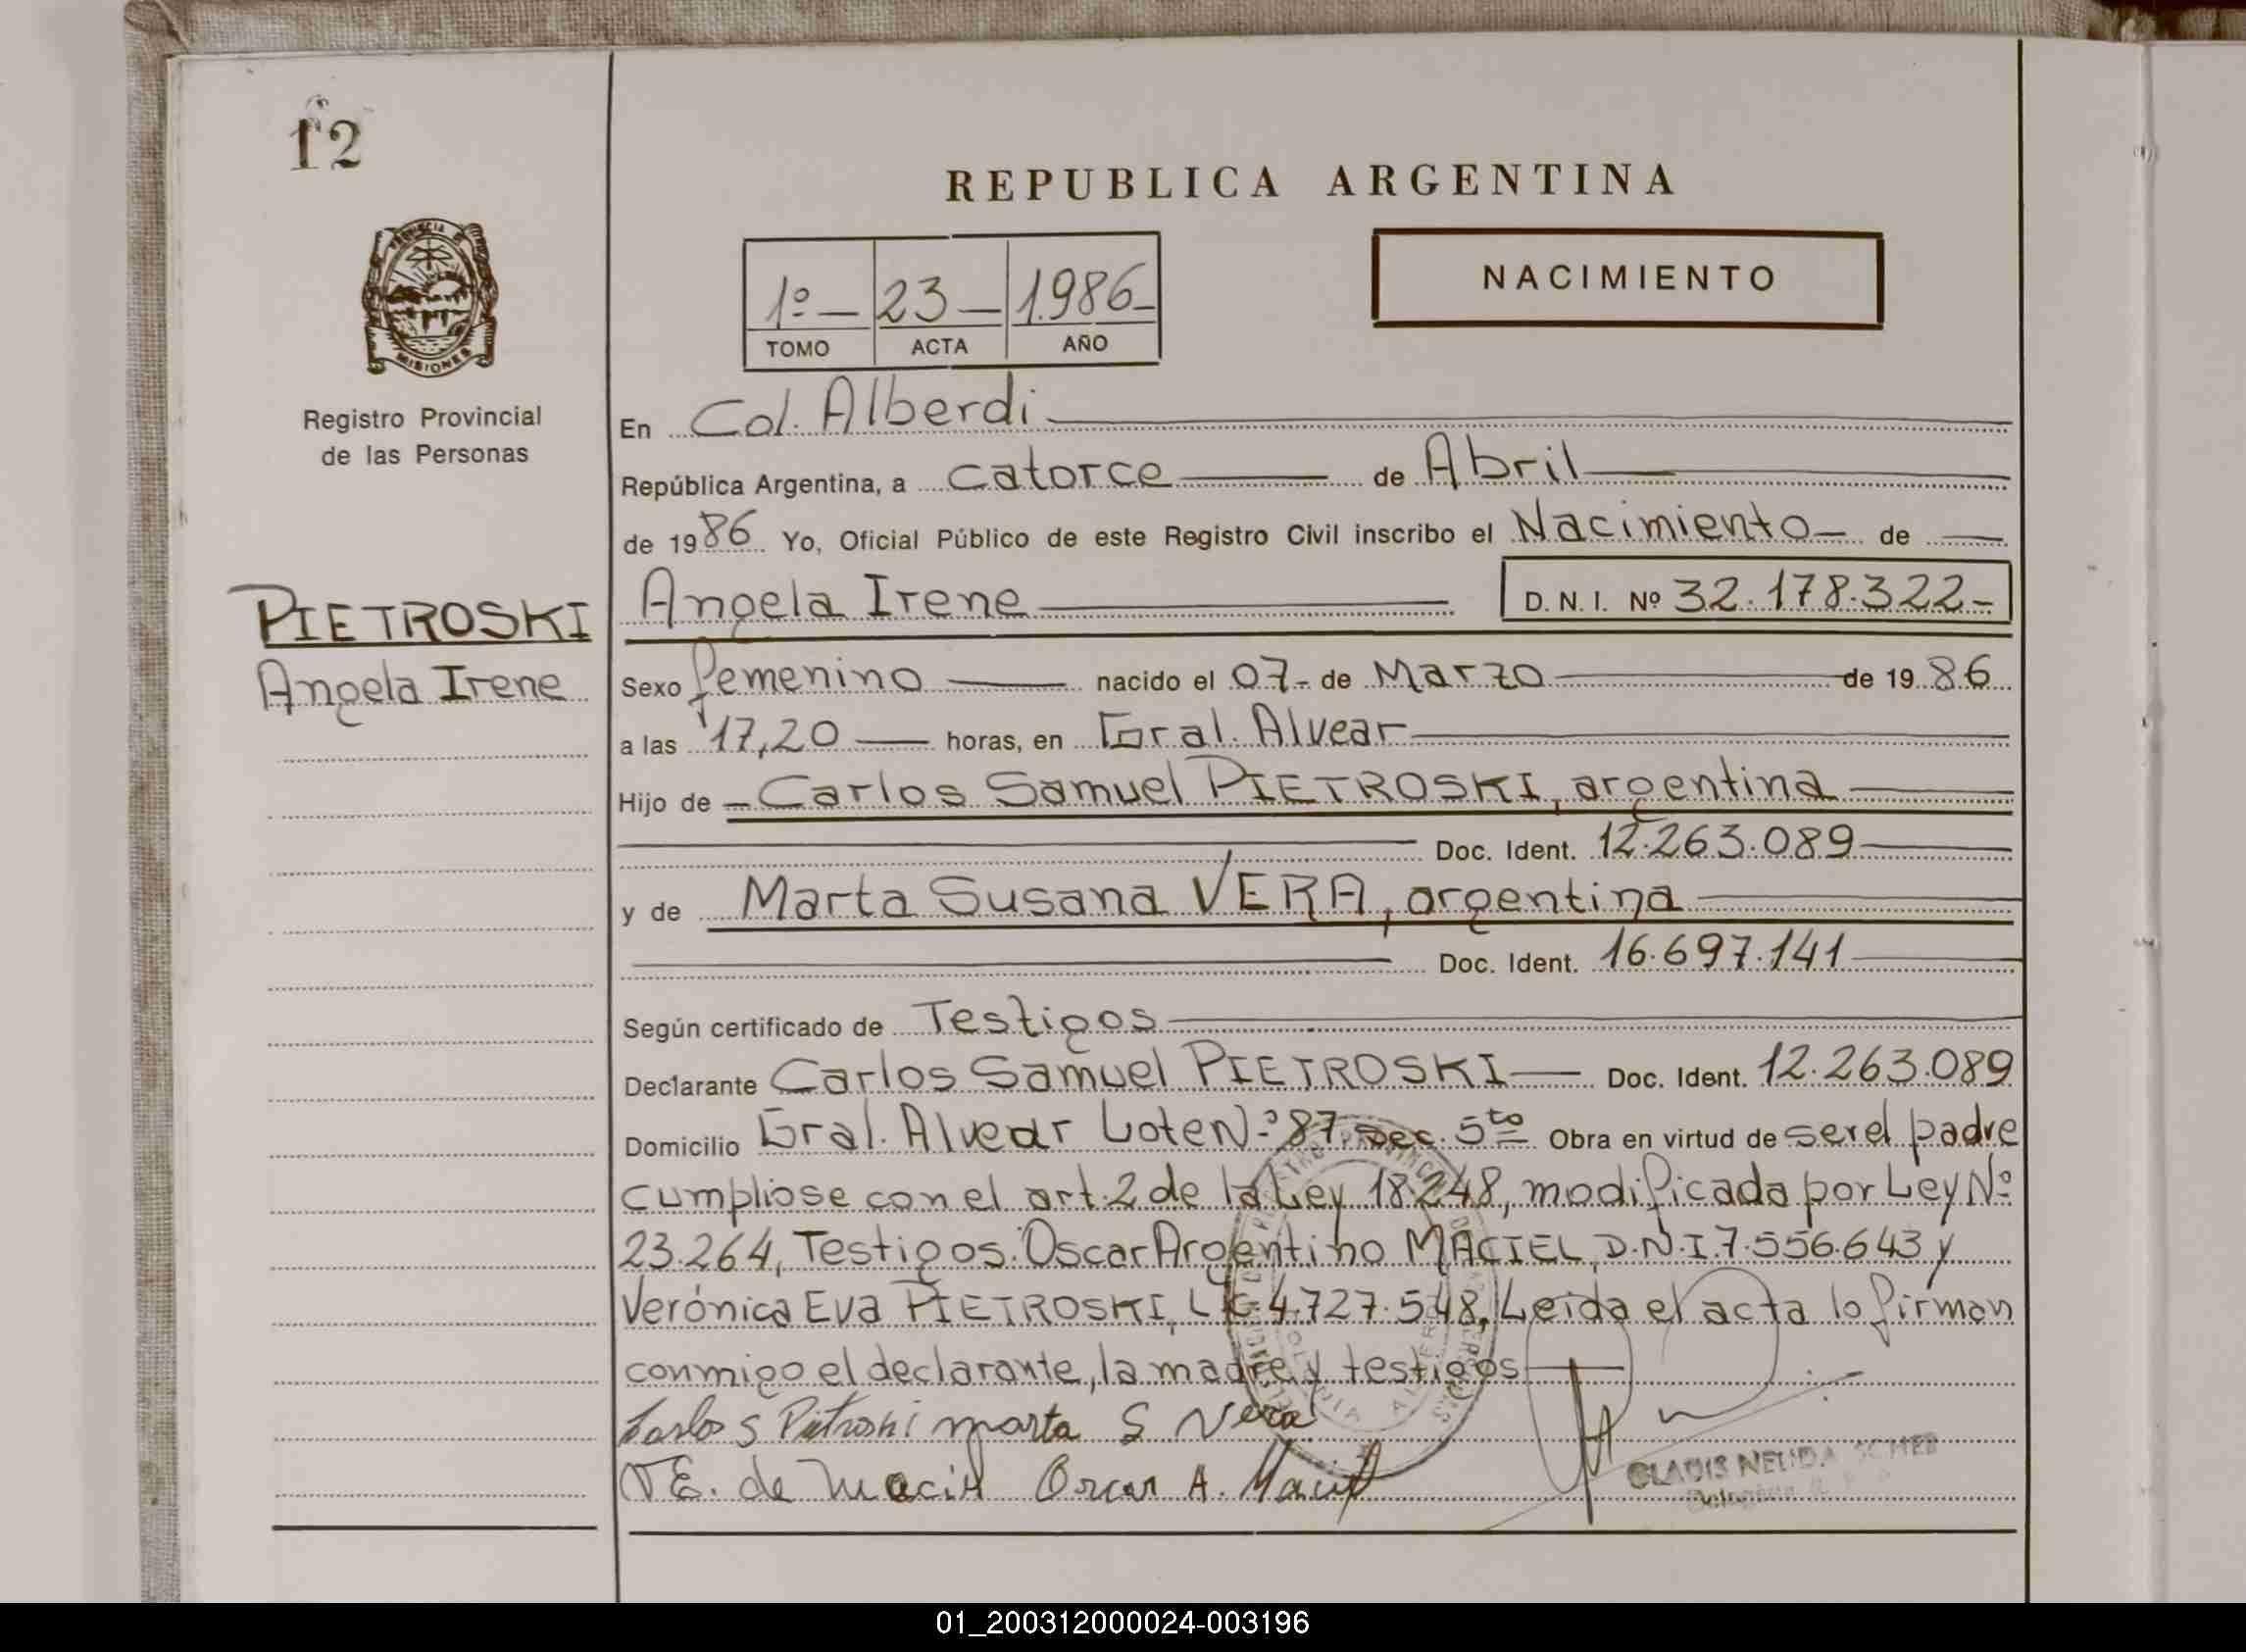 12
REPUBLICA ARGENTINA
NACIMIENTO
1º 23 1.986
TOMO ACTA AÑO
PROVINCIA DE
MISIONES
Registro Provincial
de las Personas
En Col. Alberdi
República Argentina, a catorce de Abril
de 1986 Yo, Oficial Público de este Registro Civil inscribo el Nacimiento de
PIETROSKI
Angela Irene
Angela Irene D. N. I. Nº 32.178.322-
Sexo femenino nacido el 07- de Marzo de 1986
a las 17,20 horas, en Gral. Alvear
Hijo de Carlos Samuel PIETROSKI, argentina
Doc. Ident. 12.263.089
y de Marta Susana VERA, argentina
Doc. Ident. 16.697.141
Según certificado de Testigos
Declarante Carlos Samuel PIETROSKI Doc. Ident. 12.263.089
Domicilio Gral. Alvear Lote Nº 87. Sec. 5to Obra en virtud de ser el padre
cumpliose con el art. 2 de la Ley 18.248, modificada por Ley Nº
23.264, Testigos: Oscar Argentino MACIEL, D.N.I. 7.556.643 y
Verónica Eva PIETROSKI, L.C. 4.727.548, Leida el acta lo firman
conmigo el declarante, la madre y testigos
Carlos S Pietroski Marta S Vera
V E. de Maciel Oscar A. Maciel
GLADIS NELIDA
01_200312000024-003196